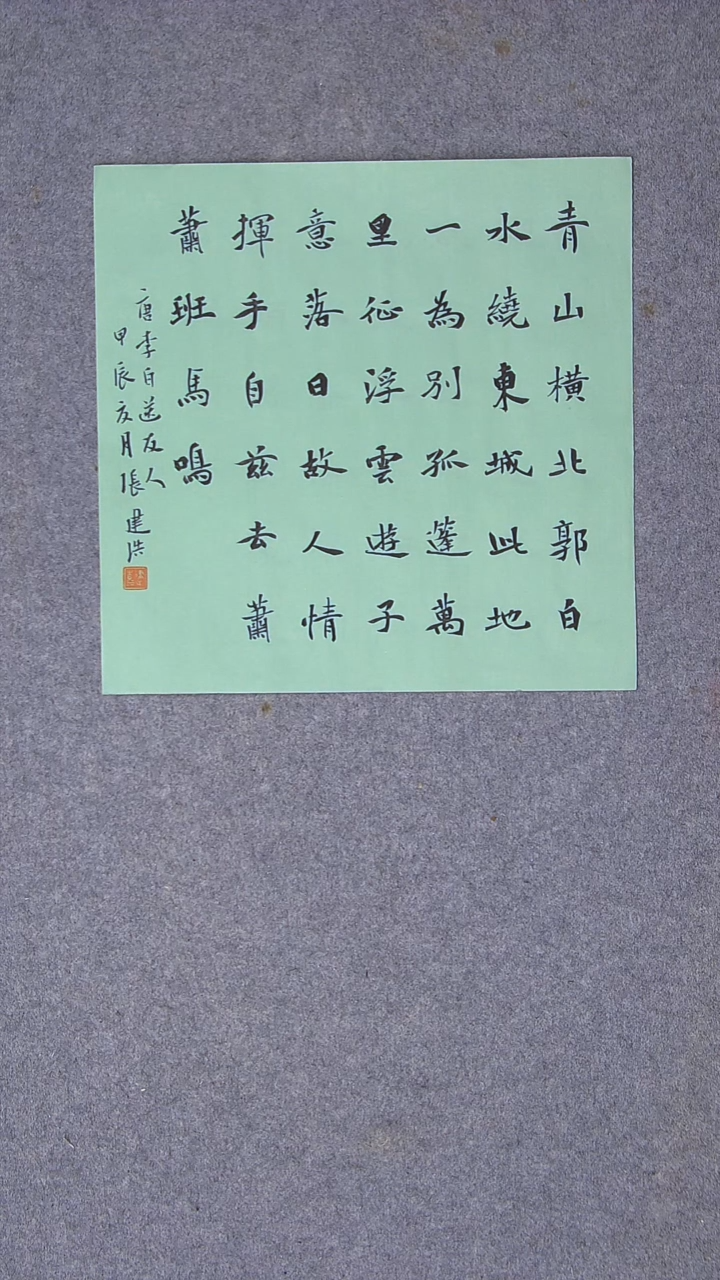 青山橫北郭白
水繞東城此地
一為別孤蓬萬
里征浮雲遊子
意落日故人情
揮手自茲去蕭
蕭班馬鳴
唐李白送友人
甲辰友月張建浩